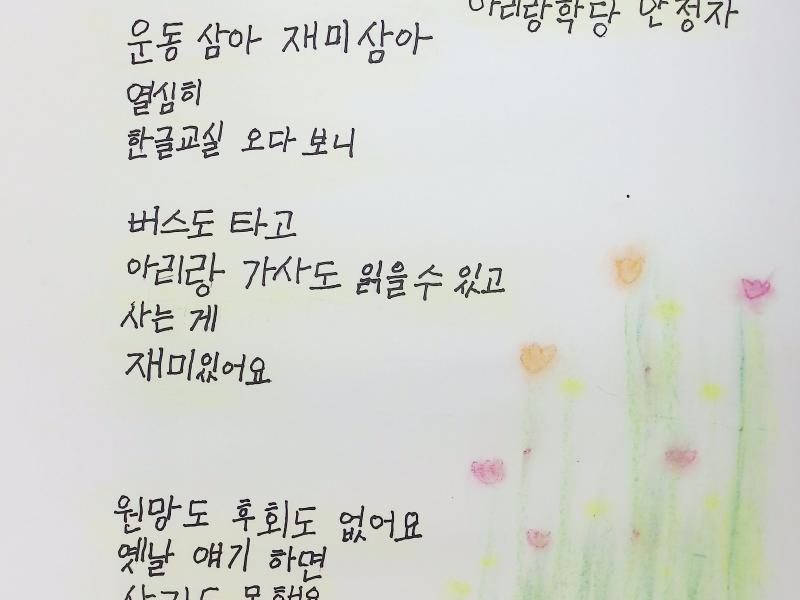 아리랑학당 안정자
운동 삼아 재미삼아
열심히
한글교실 오다 보니
버스도 타고
아리랑 가사도 읽을 수 있고
사는 게
재미있어요
원망도 후회도 없어요
옛날 얘기 하면
못해요